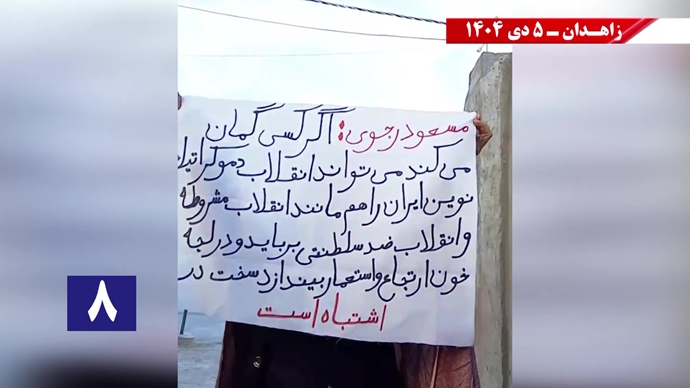 زاهـدان ــ ۵ دی ۱۴۰۴
مسعود رجوی: اگر کسی گمان
می کند می تواند انقلاب دموکراتیک
نوین ایران را هم مانند انقلاب مشروطه
و انقلاب ضد سلطنتی برباید و در لجه
خون ارتجاع و استعمار بیندازد سخت در
اشتباه است
۸